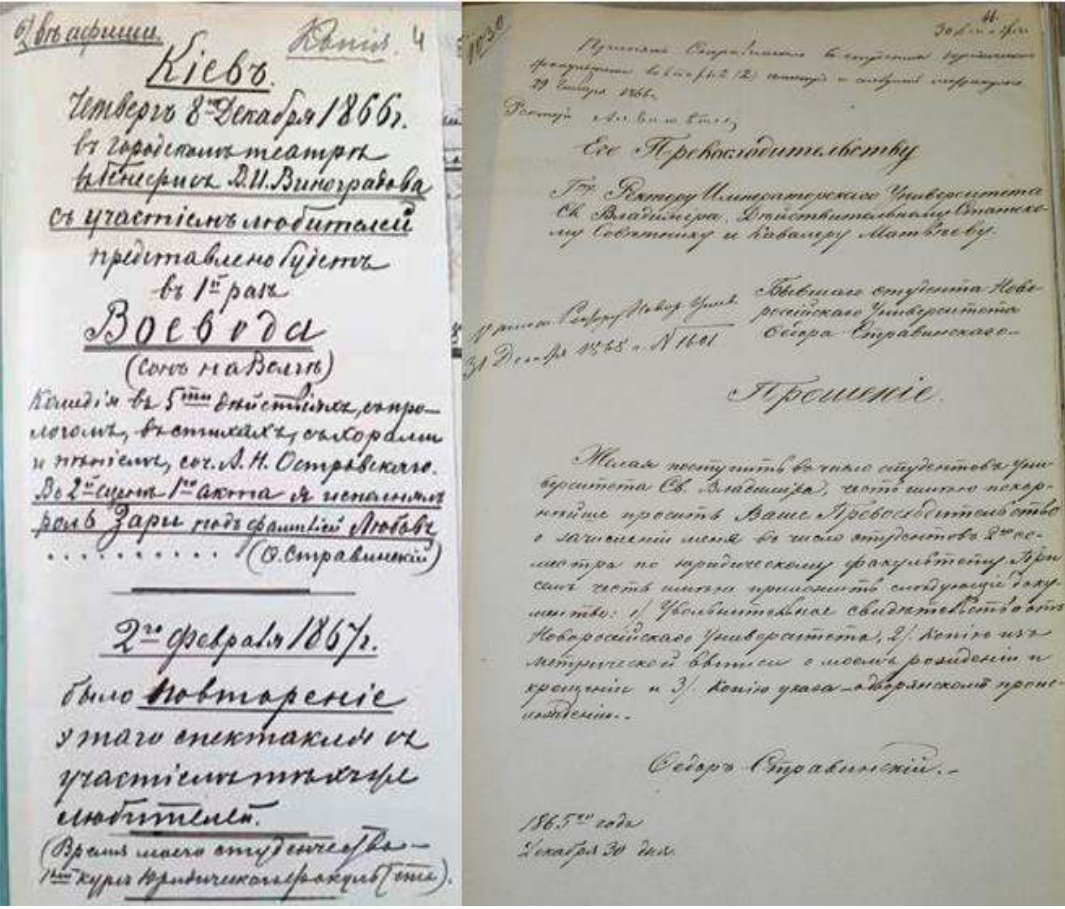 б) въ афиши.
Копія. 4
Кіевъ.
Четвергъ 8го Декабря 1866 г.
въ городскомъ театрѣ
въ бенефисъ В.И. Виноградова
съ участіемъ любителей
представлено будетъ
въ 1й разъ
Воевода
(Сонъ на Волгѣ)
Комедія въ 5ти дѣйствіяхъ, съ про-
логомъ, въ стихахъ, съ хорами
и пѣніемъ, соч. А. Н. Островскаго.
Во 2й сценѣ 1го акта я исполнялъ
роль Зари подъ фамиліей Любовъ
. . . . . . . . . . (Ѳ. Стравинскій)
2го Февраля 1867 г.
было повтореніе
этаго спектакля съ
участіемъ тѣхъ же
любителей.
(Время моего студенчества –
курсъ Юридическаго факультета).
1030
66
29 Января 1866
Его Превосходительству
Гну Ректору Императорскаго Университета
Св. Владиміра, Дѣйствительному Статско-
му Совѣтнику и Кавалеру Матвѣеву.
Бывшаго студента Ново-
россійскаго Университета
Ѳедора Стравинскаго
31 Декабря 1865 г. № 1601
Прошеніе.
Желая поступить въ число студентовъ Уни-
верситета Св. Владиміра, честь имѣю покор-
нѣйше просить Ваше Превосходительство
о зачисленіи меня въ число студентовъ 2го се-
местра по юридическому факультету. При
семъ честь имѣю приложить слѣдующіе доку-
менты: 1/ Увольнительное свидѣтельство отъ
Новоросійскаго Университета, 2/ Копію изъ
метрической выписи о моемъ рожденіи и
крещеніи и 3/ Копію указа о дворянскомъ проис-
хожденіи.
Ѳедоръ Стравинскій.
1865го года
Декабря 30 дня.